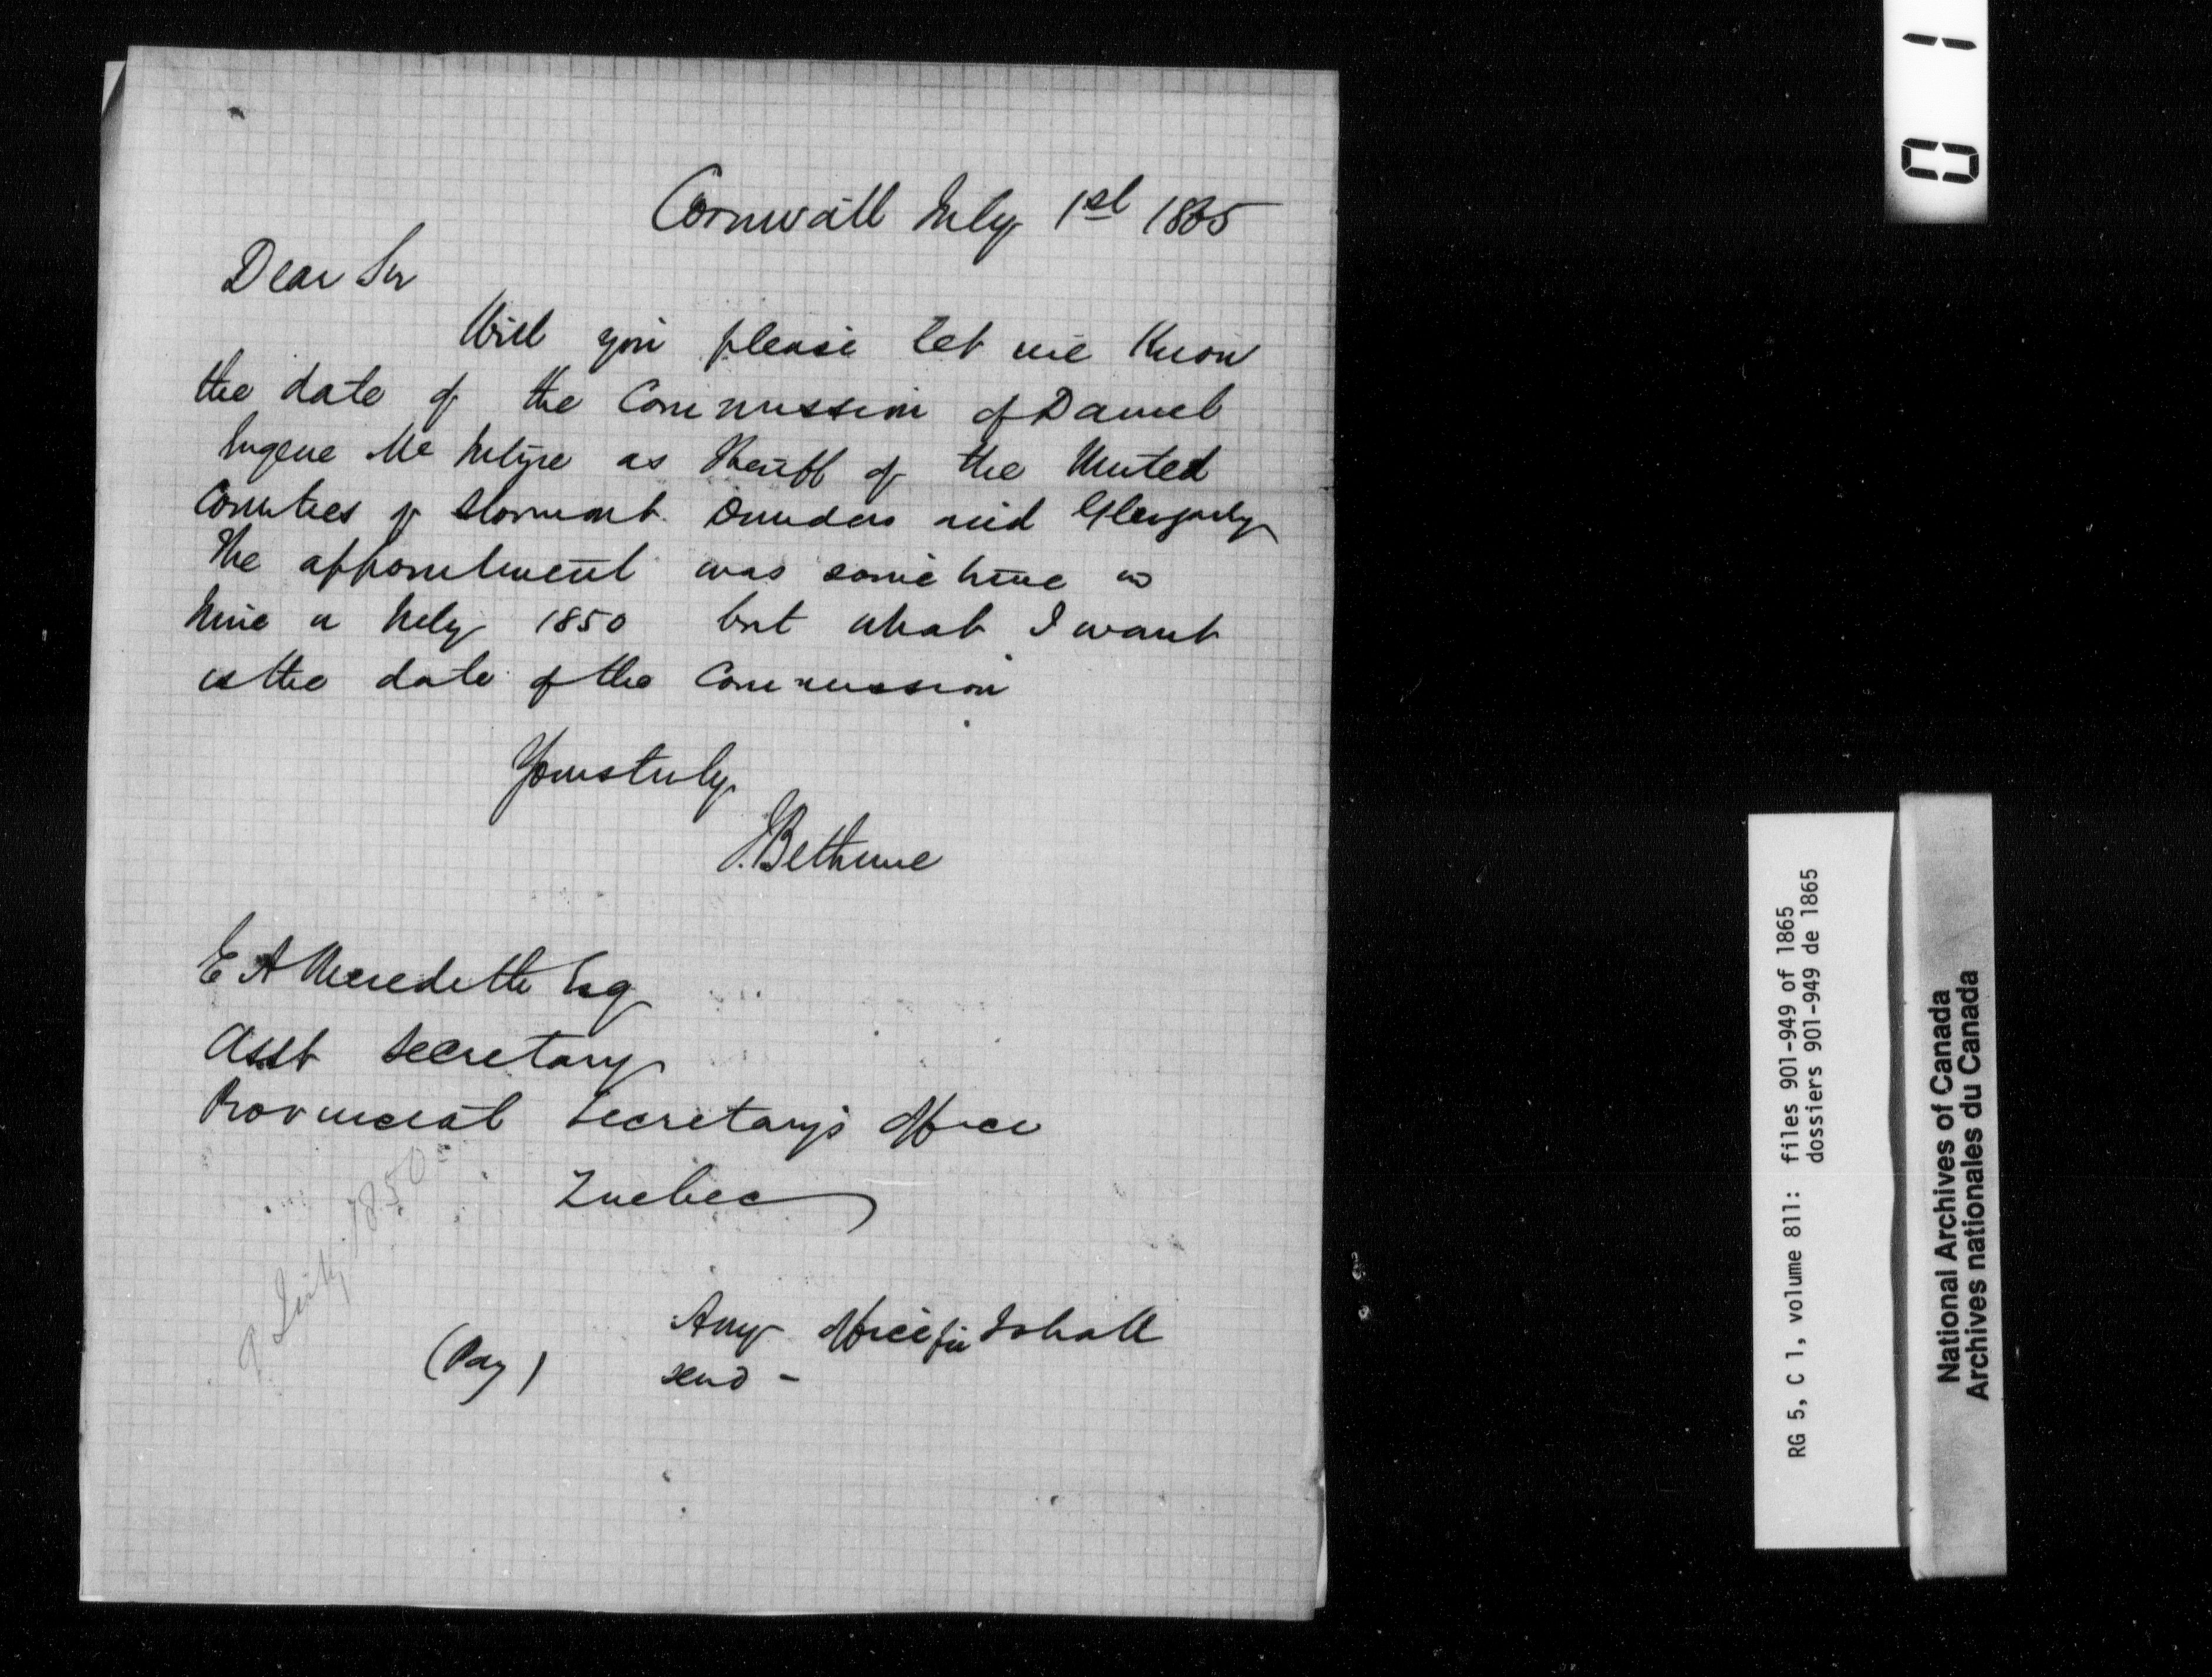 Cornwall July 1st 1865
Dear Sir
Will you please let me Know
the date of the Commission of Daniel
Eugene McIntyre as Sheriff of the United
Counties of Stormont Dundas and Glengarry
The appointment was sometime in
June or July 1850 but what I want
is the date of the Commission
Yours truly
J. Bethune
E A Meredith Esq
Asst Secretary
Provincial Secretary's Office
Quebec
July 1850
Any Office fee I shall
send -
(Pay)
01
RG 5, C 1, volume 811: files 901-949 of 1865
dossiers 901-949 de 1865
National Archives of Canada
Archives nationales du Canada